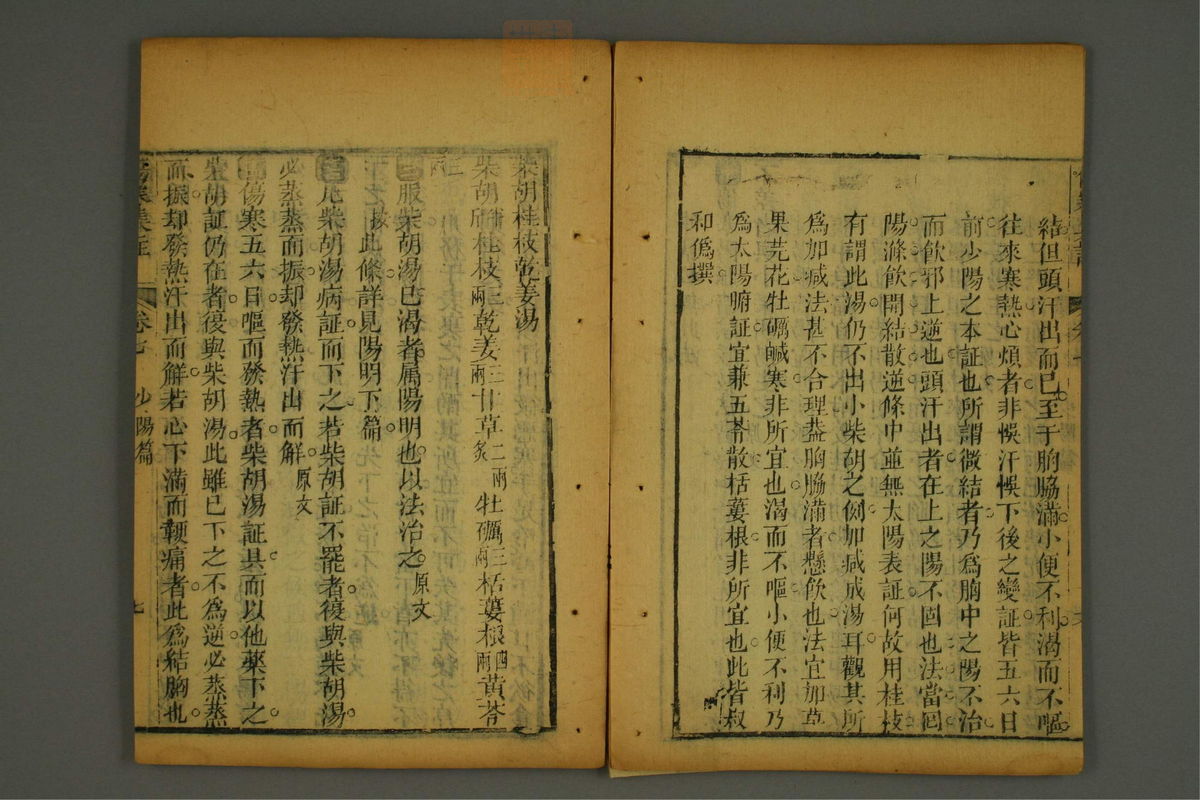 結但頭汗出而已至于胸脇滿小便不利渴而不嘔
往來寒熱心煩者非悞汗悞下後之變証皆五六日
前少陽之本証也所謂微結者乃爲胸中之陽不治
而飮邪上逆也頭汗出者在上之陽不固也法當囘
陽滌飮開結散逆條中並無太陽表証何故用桂枝
有謂此湯仍不出小柴胡之例加减成湯耳觀其所
爲加减法甚不合理葢胸脇滿者懸飮也法宜加草
果芫花牡礪鹹寒非所宜也渴而不嘔小便不利乃
爲太陽腑証宜兼五苓散栝蔞根非所宜也此皆叔
和僞撰
柴胡桂枝乾姜湯
柴胡桂枝三兩乾姜三兩甘草二兩炙牡礪三兩栝蔞根四兩黃芩
服柴胡湯已渴者属陽明也以法治之原文
按此條詳見陽明下篇
凡柴胡湯病証而下之若柴胡証不罷者復與柴胡湯
必蒸蒸而振却發熱汗出而解原文
傷寒五六日嘔而發熱者柴胡湯証具而以他藥下之
柴胡証仍在者復與柴胡湯此雖已下之不為逆必蒸蒸
而振却發熱汗出而解若心下滿而鞕痛者此爲結胸也
卷七 少陽篇 七